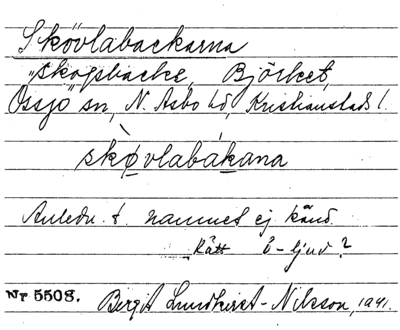 Skövlabackarna
"skogsbacke, Björket,
Össjö" sn, N. Åsbo hd, Kristianstads l.
skòvlabákana
Anledn. t. namnet ej känd.
Rätt ö-ljud?
Nr 5508. Bergit Lundkvist-Nilsson, 1941.